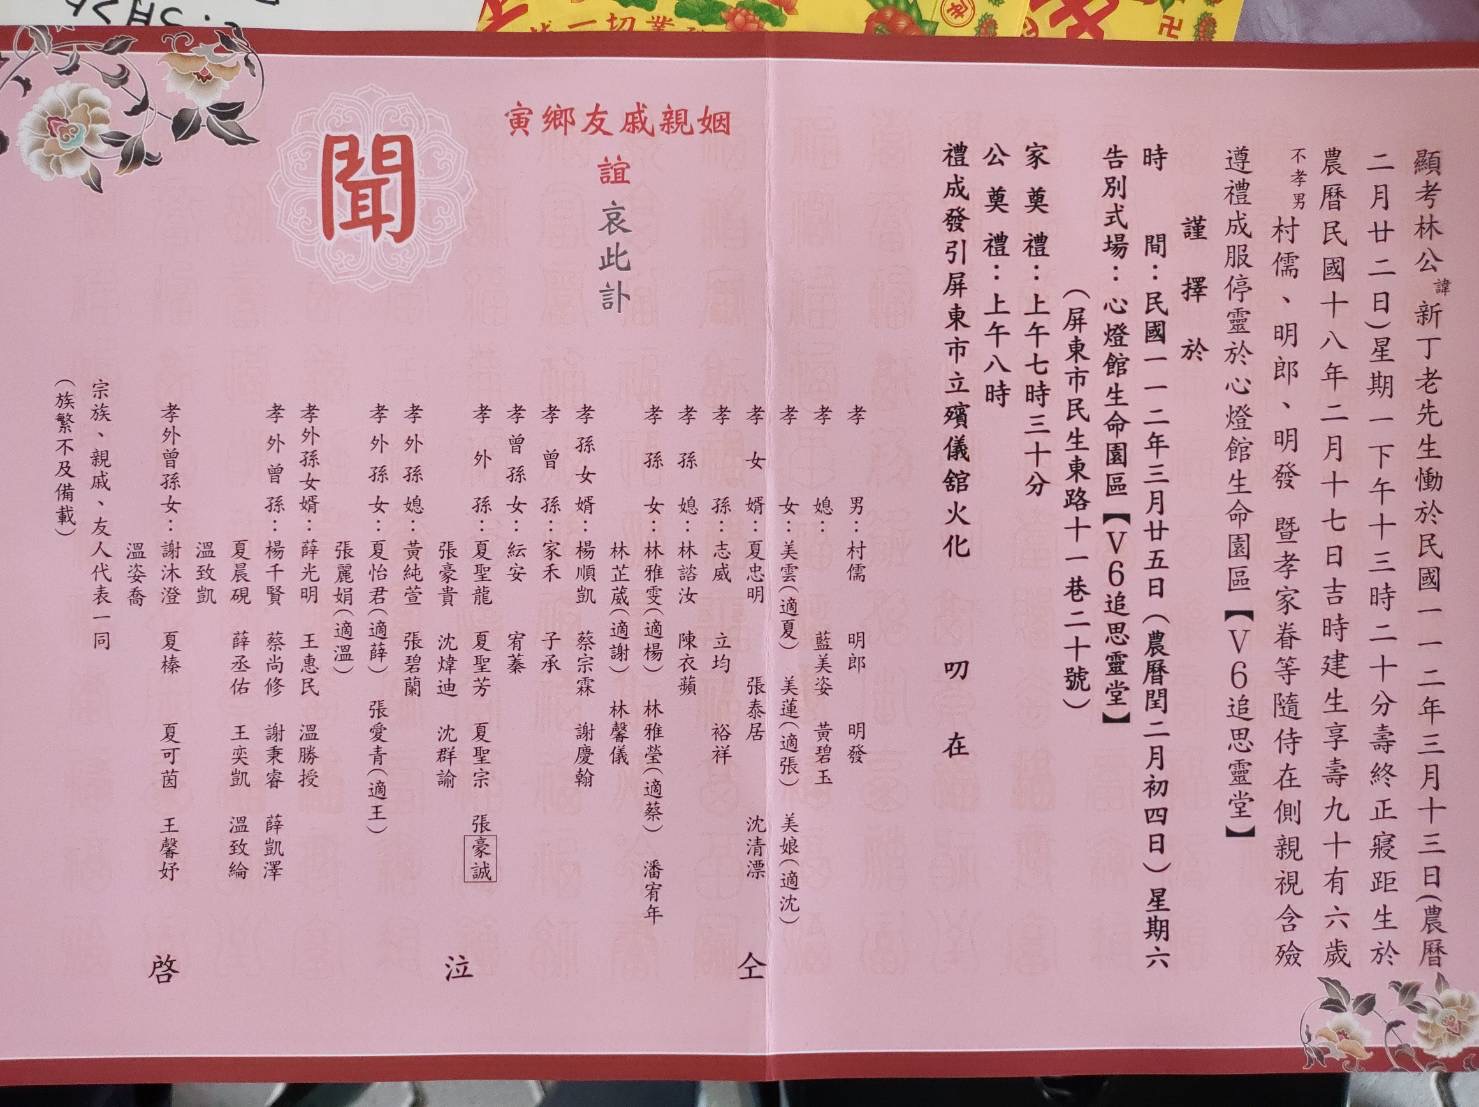 顯考林公諱新丁老先生慟於民國一一二年三月十三日(農曆
二月廿二日)星期一下午十三時二十分壽終正寢距生於
農曆民國十八年二月十七日吉時建生享壽九十有六歲
不孝男村儒、明郎、明發 暨孝家眷等隨侍在側親視含殮
遵禮成服停靈於心燈館生命園區【V6追思靈堂】
謹擇於
時間：民國一一二年三月廿五日(農曆閏二月初四日)星期六
告別式場：心燈館生命園區【V6追思靈堂】
(屏東市民生東路十一巷二十號)
家奠禮：上午七時三十分
公奠禮：上午八時
禮成發引屏東市立殯儀舘火化 叨在
姻親戚友鄉寅
誼哀此訃
聞
孝男：村儒 明郎 明發
孝媳： 藍美姿 黃碧玉
孝女：美雲(適夏) 美蓮(適張) 美娘(適沈)
孝女婿：夏忠明 張泰居 沈清漂
孝孫：志威 立均 裕祥
孝孫媳：林諮汝 陳衣蘋
孝孫女：林雅雯(適楊) 林雅瑩(適蔡) 潘宥年
林芷葳(適謝) 林馨儀
孝孫女婿：楊順凱 蔡宗霖 謝慶翰
孝曾孫：家禾 子承
孝曾孫女：紜安 宥蓁
孝外孫：夏聖龍 夏聖芳 夏聖宗 張豪誠
張豪貴 沈煒迪 沈群諭
孝外孫媳：黃純萱 張碧蘭
孝外孫女：夏怡君(適薛) 張愛青(適王)
張麗娟(適溫)
孝外孫女婿：薛光明 王惠民 溫勝授
孝外曾孫：楊千賢 蔡尚修 謝秉睿 薛凱澤
夏晨硯 薛丞佑 王奕凱 溫致綸
溫致凱
孝外曾孫女：謝沐澄 夏榛 夏可茵 王馨妤
溫姿喬
宗族、親戚、友人代表一同
(族繁不及備載)
仝
泣
啓